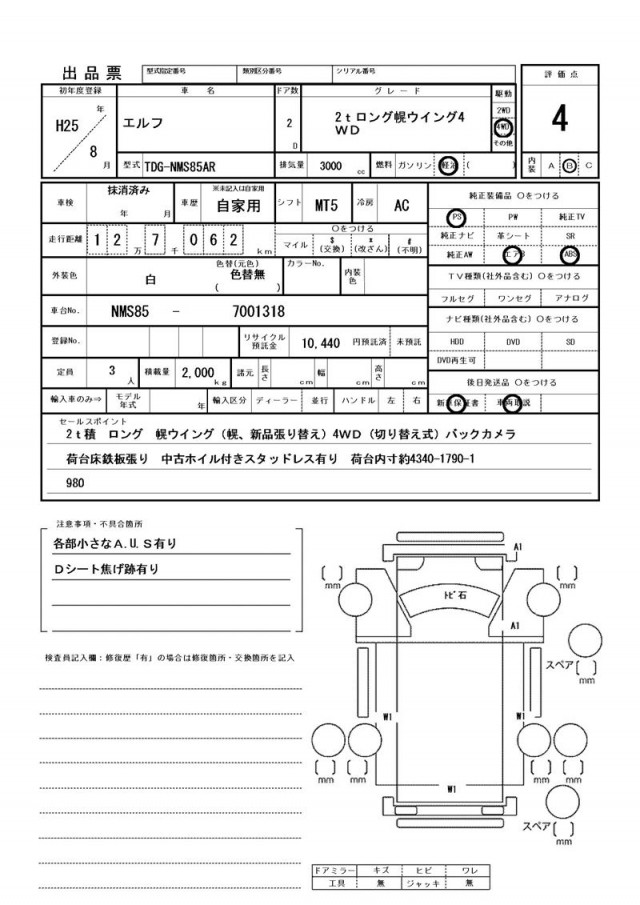 出品票 型式指定番号 類別区分番号 シリアル番号
評価点
4
内装 A B C
初年度登録 車名 ドア数 グレード 駆動
H25 年 8 月
エルフ
2 D
2tロング幌ウイング4WD
2WD
4WD
その他
型式 TDG-NMS85AR 排気量 3000 cc 燃料 ガソリン 軽油 ( )
車検 抹消済み 年 月 車歴 ※未記入は自家用 自家用 シフト MT5 冷房 AC
走行距離 1 2 万 7 千 0 6 2 km
○をつける
マイル $(交換) *(改ざん) #(不明)
外装色 白 色替(元色) 色替無 ( ) カラーNo. 内装色
車台No. NMS85 - 7001318
登録No. リサイクル預託金 10,440 円預託済 未預託
定員 3 人 積載量 2,000 kg 諸元 長さ cm 幅 cm 高さ cm
輸入車のみ⇒ モデル年式 年 輸入区分 ディーラー 並行 ハンドル 左 右
純正装備品 ○をつける
PS PW 純正TV
純正ナビ 革シート SR
純正AW エアB ABS
TV種類(社外品含む) ○をつける
フルセグ ワンセグ アナログ
ナビ種類(社外品含む) ○をつける
HDD DVD SD
DVD再生可
後日発送品 ○をつける
新車保証書 車両取説
セールスポイント
2t積 ロング 幌ウイング(幌、新品張り替え)4WD(切り替え式)バックカメラ
荷台床鉄板張り 中古ホイル付きスタッドレス有り 荷台内寸約4340-1790-1
980
注意事項・不具合箇所
各部小さなA.U.S有り
Dシート焦げ跡有り
検査員記入欄:修復歴「有」の場合は修復箇所・交換箇所を記入
A1
[ ] mm
[ ] mm
ﾄﾋﾞ石
A1
スペア [ ] mm
W1
W1
[ ] mm [ ] mm
[ ] mm [ ] mm
W1
スペア [ ] mm
ドアミラー キズ ヒビ ワレ
工具 無 ジャッキ 無